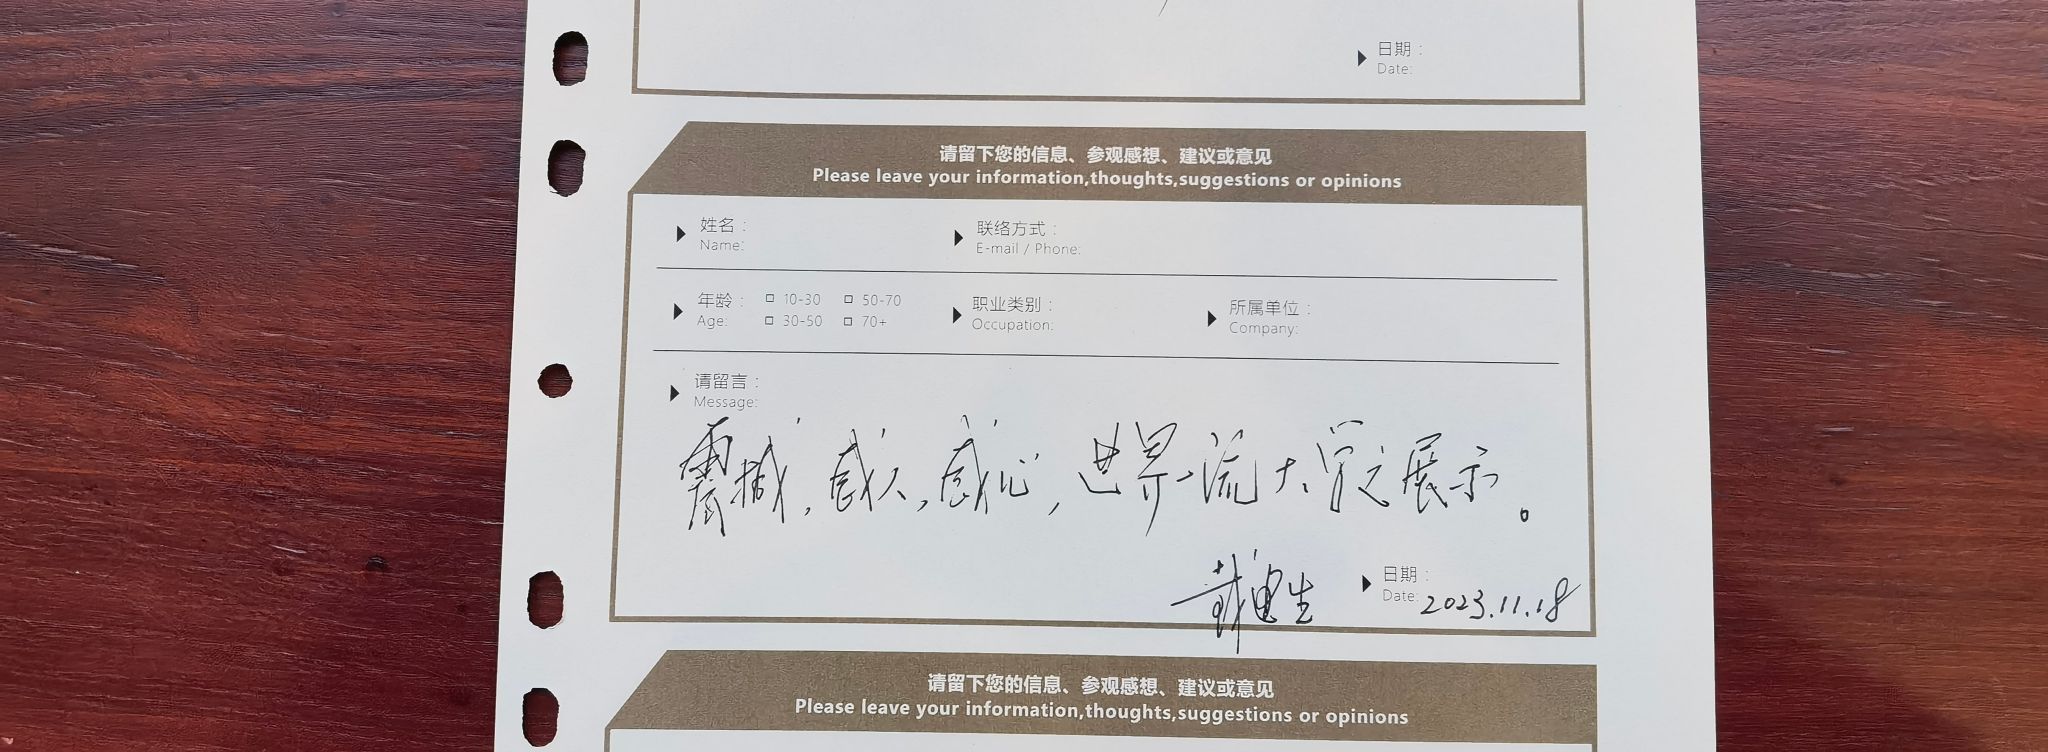 日期：
Date:
请留下您的信息、参观感想、建议或意见
Please leave your information,thoughts,suggestions or opinions
姓名：
Name:
联络方式：
E-mail / Phone:
年龄：
Age:
10-30
50-70
30-50
70+
职业类别：
Occupation:
所属单位：
Company:
请留言：
Message:
震撼，感人，感心，世界一流大学之展示。
日期：
Date: 2023.11.18
请留下您的信息、参观感想、建议或意见
Please leave your information,thoughts,suggestions or opinions